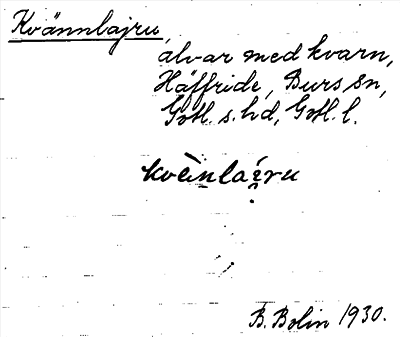 Kvännlajru,
alvar med kvarn,
Häffride, Burs sn,
Gotl. s. hd, Gotl. l.
kvènlai̯ru
B. Bolin 1930.